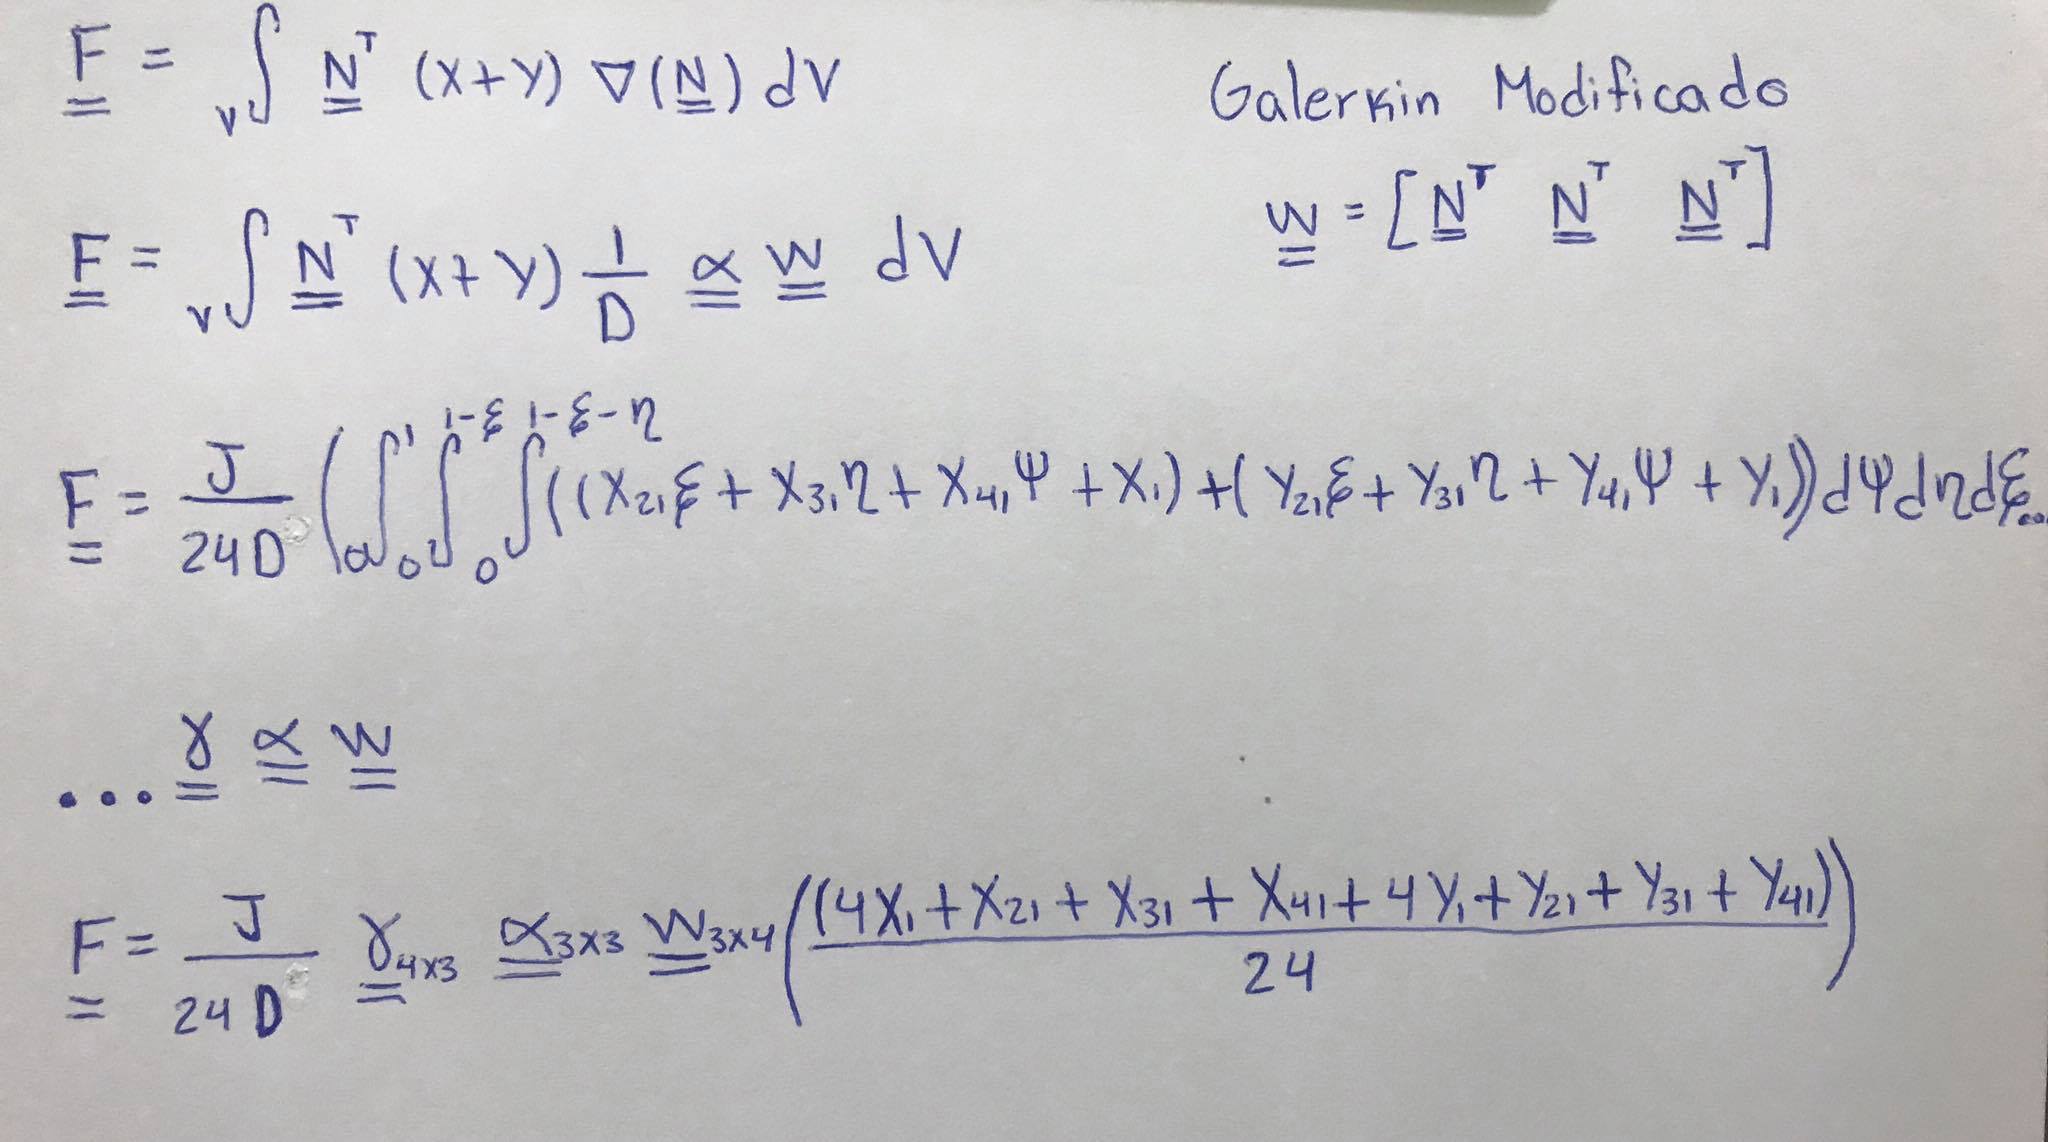 F = ∫_V N^T (X+Y) ∇(N) dV
Galerkin Modificado
W = [N^T N^T N^T]
F = ∫_V N^T (X+Y) 1/D α W dV
F = J/24D (∫_0^1 ∫_0^{1-ξ} ∫_0^{1-ξ-η} ((X₂₁ξ + X₃₁η + X₄₁Ψ + X₁) + (Y₂₁ξ + Y₃₁η + Y₄₁Ψ + Y₁)) dΨdηdξ...
... γ α W
F = J/24D γ_{4x3} α_{3x3} W_{3x4} ((4X₁ + X₂₁ + X₃₁ + X₄₁ + 4Y₁ + Y₂₁ + Y₃₁ + Y₄₁)/24)